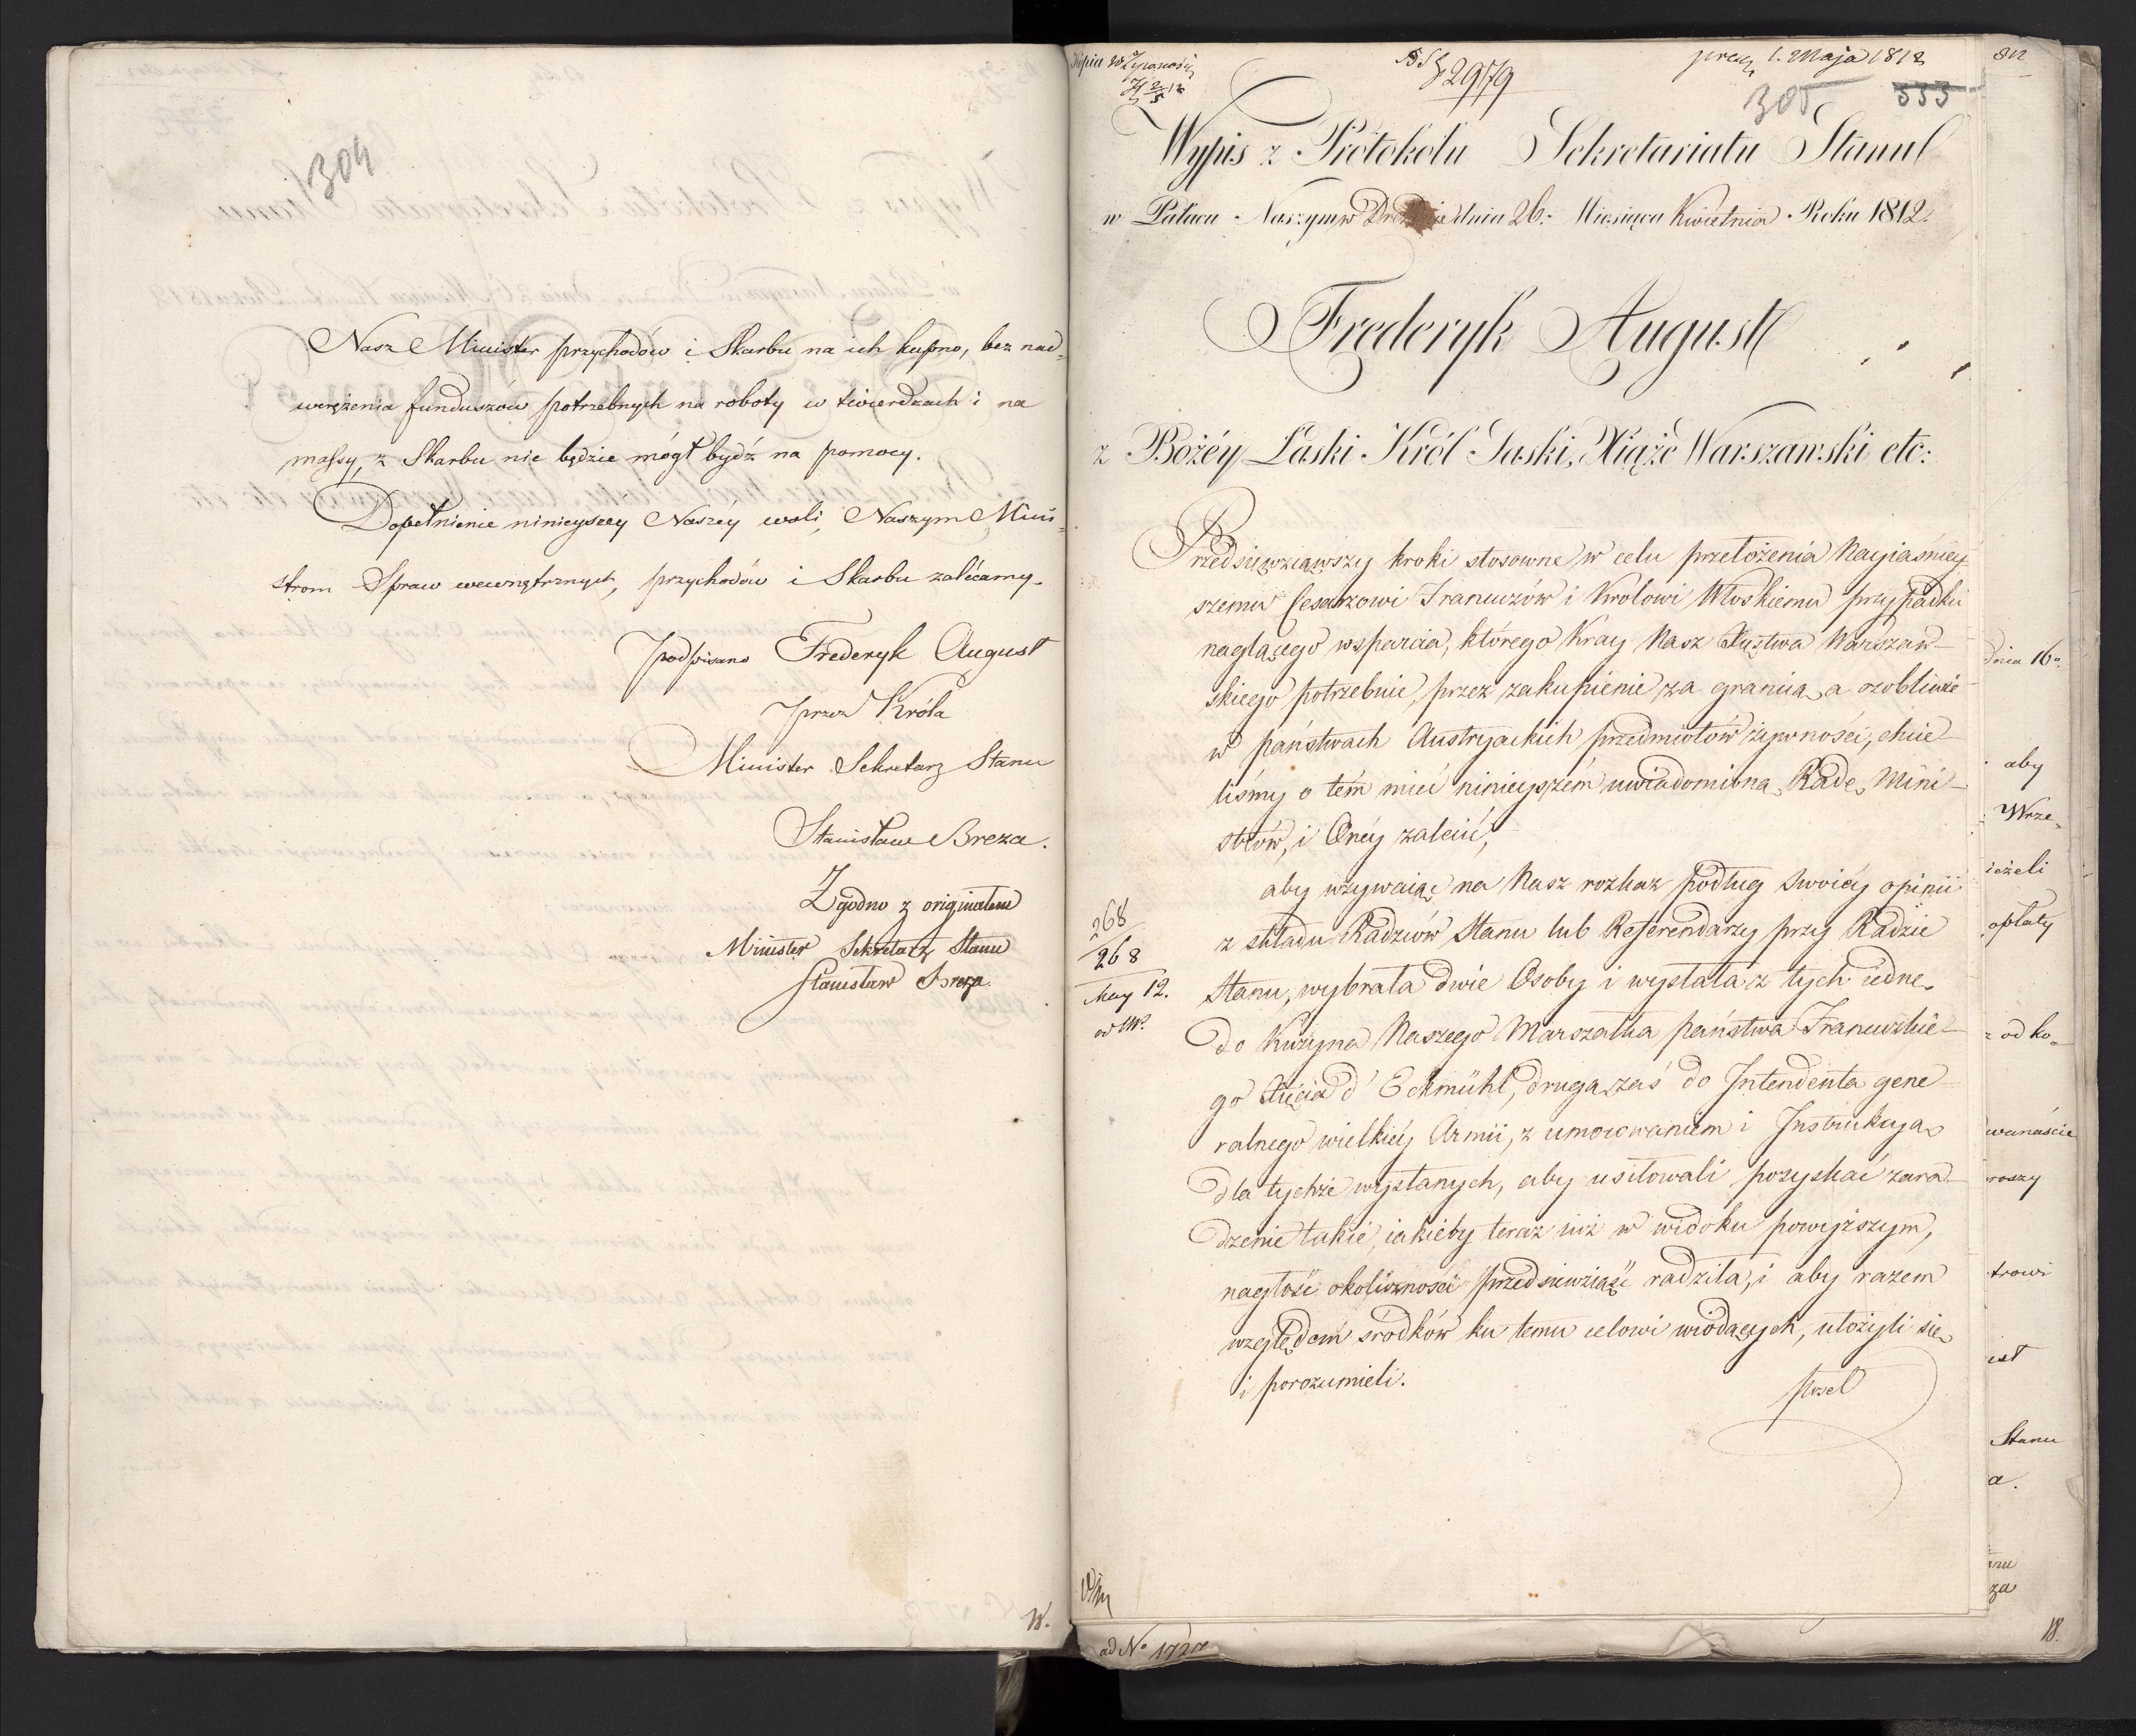 304
Nasz Minister przychodów i Skarbu na ich kupno, bez nad=
werężenia funduszów potrzebnych na roboty w twierdzach i na
massy, z Skarbu nie będzie mógł bydź na pomocy.
Dopełnienie ninieyszey Naszéy woli, Naszym Mini=
strom Spraw wewnętrznych, przychodów i Skarbu zalécamy.
podpisano Frederyk August
przez Króla
Minister Sekretarz Stanu
Stanisław Breza.
Zgodno z originałem
Minister Sekretarz Stanu
Stanisław Breza.
W.
Kopia
2979
prez. 1. Maja 1812
305 333
Wypis z Protokółu Sekretariatu Stanu
w Pałacu Naszym w dnia 26. Miesiąca Kwietnia Roku 1812.
Frederyk August
z Bożéy Łaski Król Saski, Xiążę Warszawski etc:
Przedsięwziąwszy kroki stosowne w celu przełożenia Nayiaśniey
szemu Cesarzowi Francuzów i Królowi Włoskiemu przypadku
naglącego wsparcia, którego Kray Nasz Xięstwa Warszaw-
skiego potrzebuie, przez zakupienie za granicą, a osobliwie
w państwach Austryackich przedmiotów żywności, chcie-
liśmy o tém mieć ninieyszém uwiadomioną Radę Mini-
strów, i Onéy zalecić,
aby wzywaiąc na Nasz rozkaz podług swoiéy opinii
z składu Radzców Stanu lub Referendarzy przy Radzie
Stanu, wybrała dwie Osoby i wysłała z tych iednę
do Kuzyna Naszego Marszałka państwa Francuzkie-
go Xięcia d'Eckmühl, drugą zaś do Intendenta gene-
ralnego wielkiéy Armii, z umocowaniem i Instrukcyą
dla tychże wysłanych, aby usiłowali pozyskać zara-
dzenie takie, iakieby teraz iuż w widoku powyższym,
nagłość okoliczności przedsięwziąść radziła, i aby razem
względem srodków ku temu celowi wiodących, ułożyli się
i porozumieli.
268
268
May 12.
ad No 1727
dnia 16.
aby
Wrze=
ieżeli
opłaty
od ko=
wanaście
roszy
trowi
est
Stanu
a.
za
18.